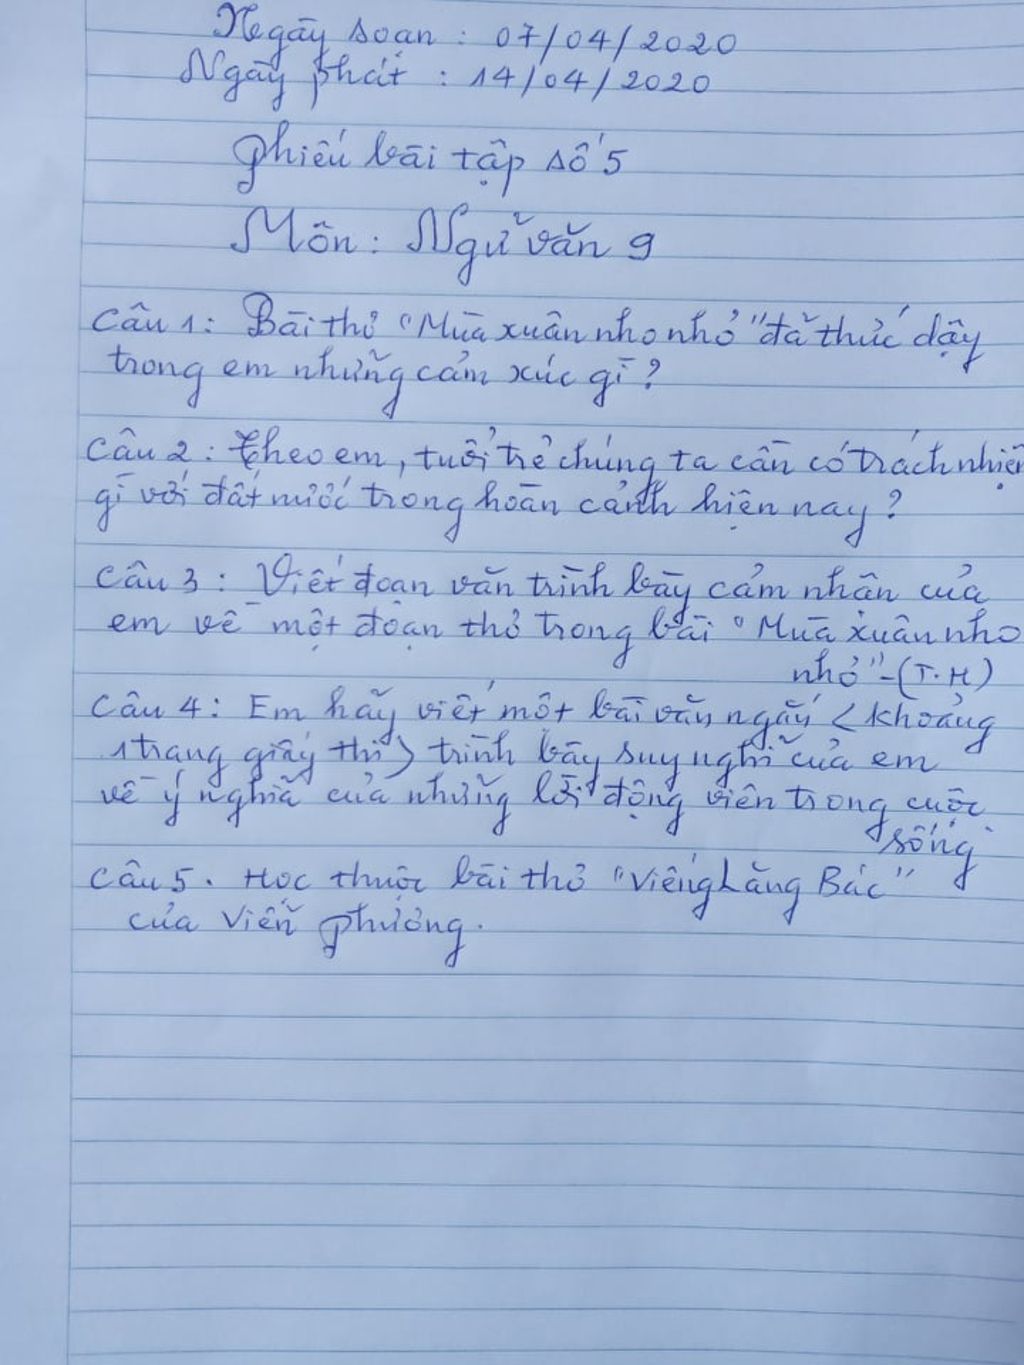 Ngày soạn : 07/04/2020
Ngày phát : 14/04/2020
Phiếu bài tập số 5
Môn : Ngữ văn 9
Câu 1 : Bài thơ "Mùa xuân nho nhỏ" đã thức dậy
trong em những cảm xúc gì ?
Câu 2 : Theo em, tuổi trẻ chúng ta cần có trách nhiệm
gì với đất nước trong hoàn cảnh hiện nay ?
Câu 3 : Viết đoạn văn trình bày cảm nhận của
em về một đoạn thơ trong bài "Mùa xuân nho
nhỏ" - (T.H)
Câu 4 : Em hãy viết một bài văn ngắn (khoảng
1 trang giấy thi) trình bày suy nghĩ của em
về ý nghĩa của những lời động viên trong cuộc
sống
Câu 5. Học thuộc bài thơ "Viếng Lăng Bác"
của Viễn Phương.